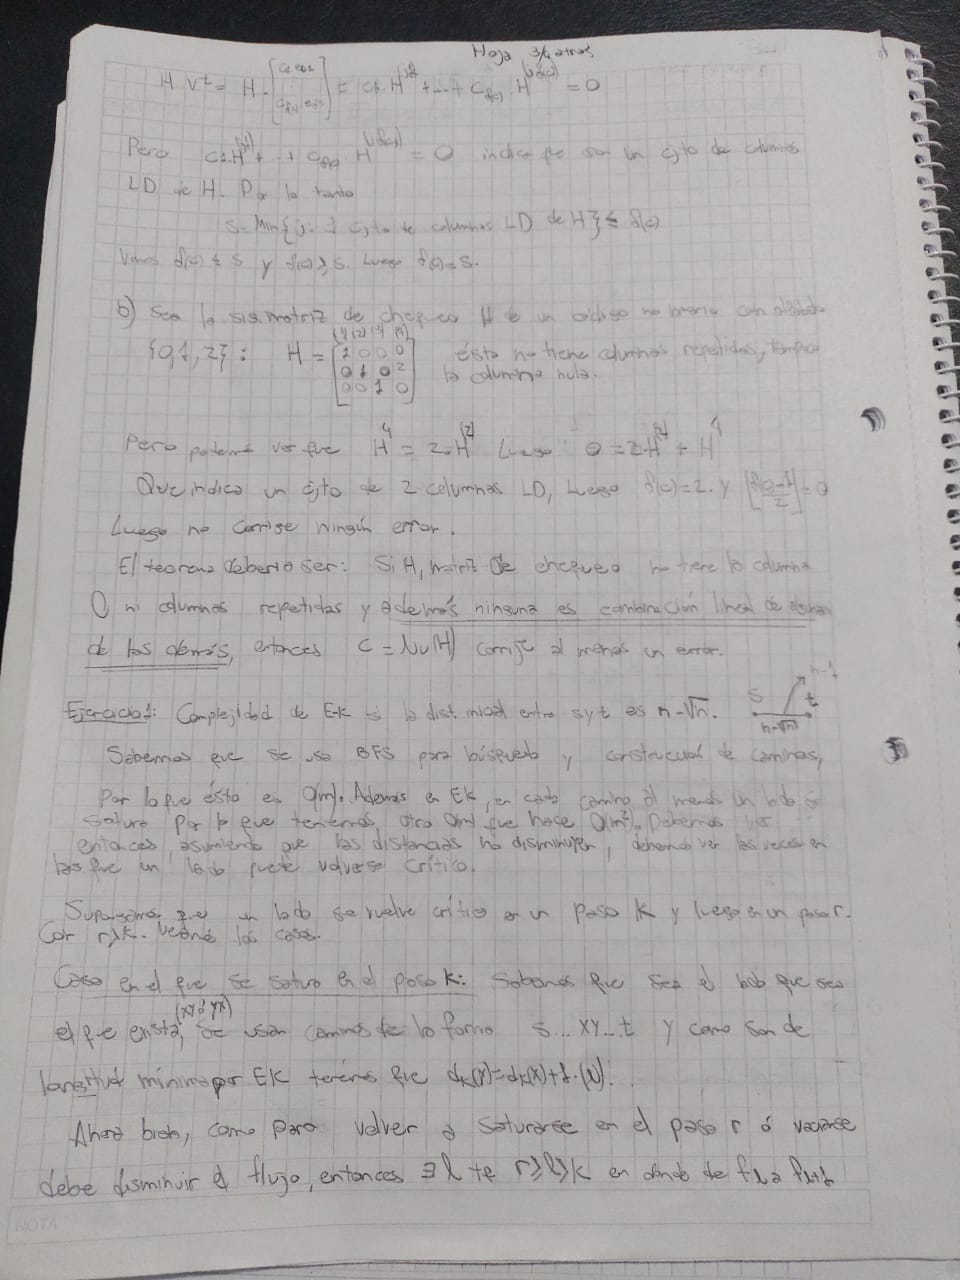 Hoja 3/4 atras
H.V^t = H. = c1.H + ... + c H = 0
Pero + + = 0 indica que son un cjto de columnas
LD de H. Por lo tanto
S = Min{j: ∃ cjto de columnas LD de H} ≤ δ(c)
Vimos δ(c) ≤ S y δ(c) ≥ S. Luego δ(c) = S.
b) Sea la sig matriz de chequeo H de un código no binario con
{0,1,2}: H = [1 0 0 0 ésta no tiene columnas repetidas, tampoco
0 1 0 2 la columna nula.
0 0 1 0]
Pero podemos ver que H^4 = 2.H^(2) Luego: 0 = 2.H^(2) + H^4
Que indica un cjto de 2 columnas LD, Luego δ(c)=2. y [δ(c)-1/2]=0
Luego no corrige ningún error.
El teorema debería ser: Si H, matriz de chequeo no tiene la columna
0 ni columnas repetidas y además ninguna es combinación lineal de
de las demás, entonces C = Nu(H) corrije al menos un error.
Ejercicio 1: Complejidad de EK si la dist inicial entre s y t es n-√n.
S t
n-√n
Sabemos que se usa BFS para búsqueda y construcción de caminos,
Por lo que ésto es O(m). Ademas en EK, en cada camino al menos un lado se
satura por lo que tenemos otro O(m) que hace O(m²). Debemos
entonces asumiendo que las distancias no disminuyen, debemos ver las veces en
las que un lado puede volverse crítico.
Supongamos que un lado se vuelve crítico en un paso K y luego en un paso r.
Con r>K. Veamos los casos.
Caso en el que se satura en el paso K: Sabemos que sea el lado que sea
el que exista (xy ó yx), se usan caminos de la forma s...xy...t y como son de
longitud mínima por EK tenemos que dk(y)=dk(x)+1.
Ahora bien, como para volver a saturarse en el paso r ó vaciarse
debe disminuir el flujo, entonces ∃ l tq r≥l>K en donde de fl a fl+1
NOTA